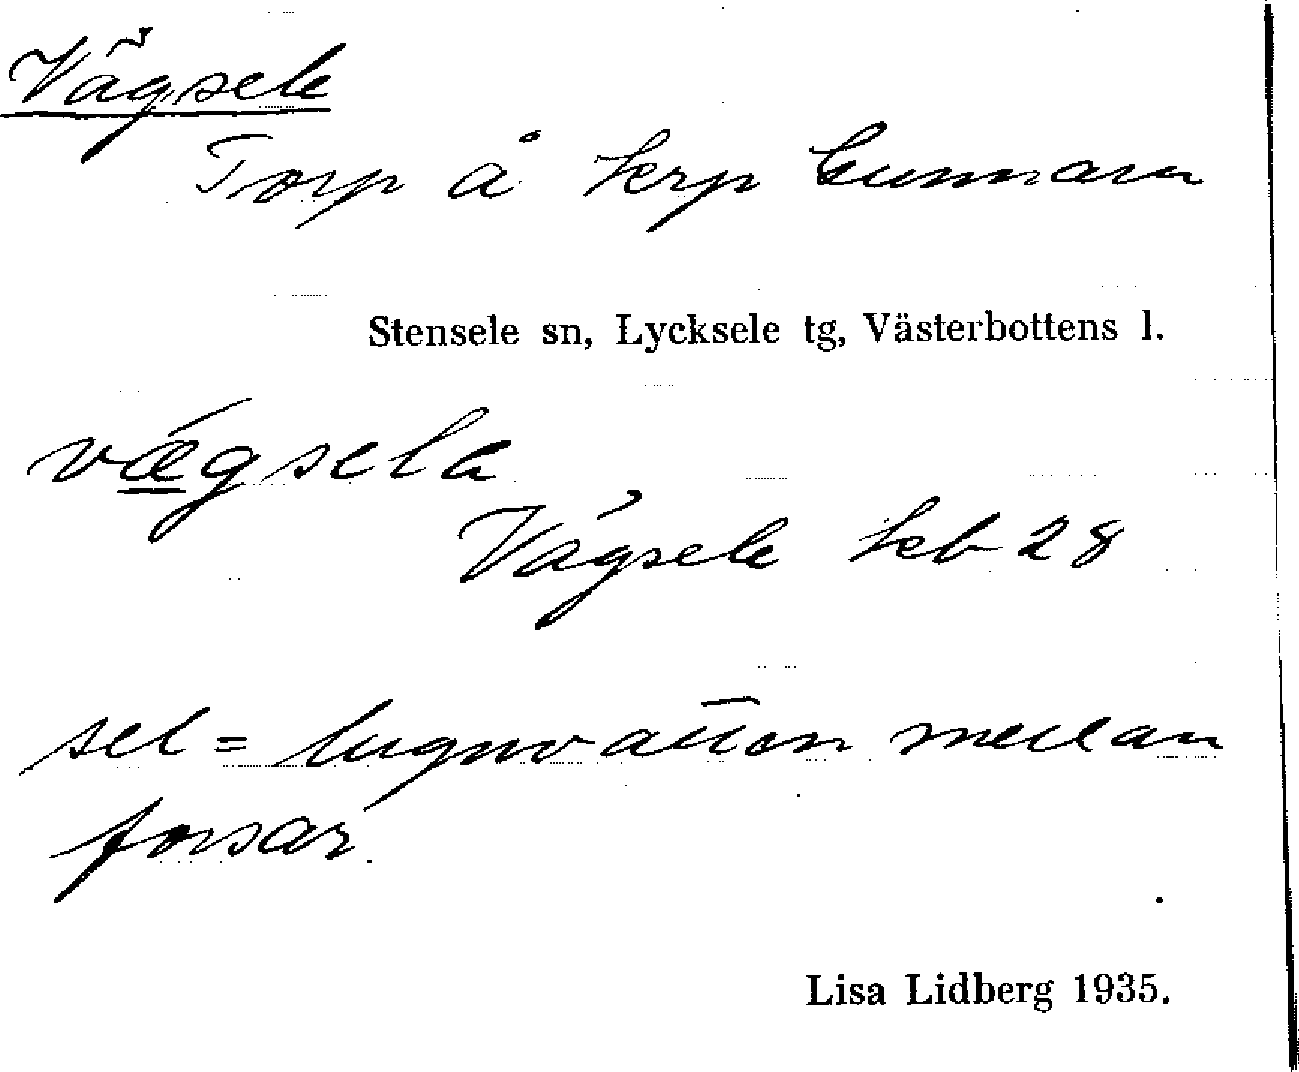 Vägsele
Torp å krp Gunnarn
Stensele sn, Lycksele tg, Västerbottens l.
vægsela
Vägsele kb 28
sel = lugnvatten mellan
forsar.
Lisa Lidberg 1935.